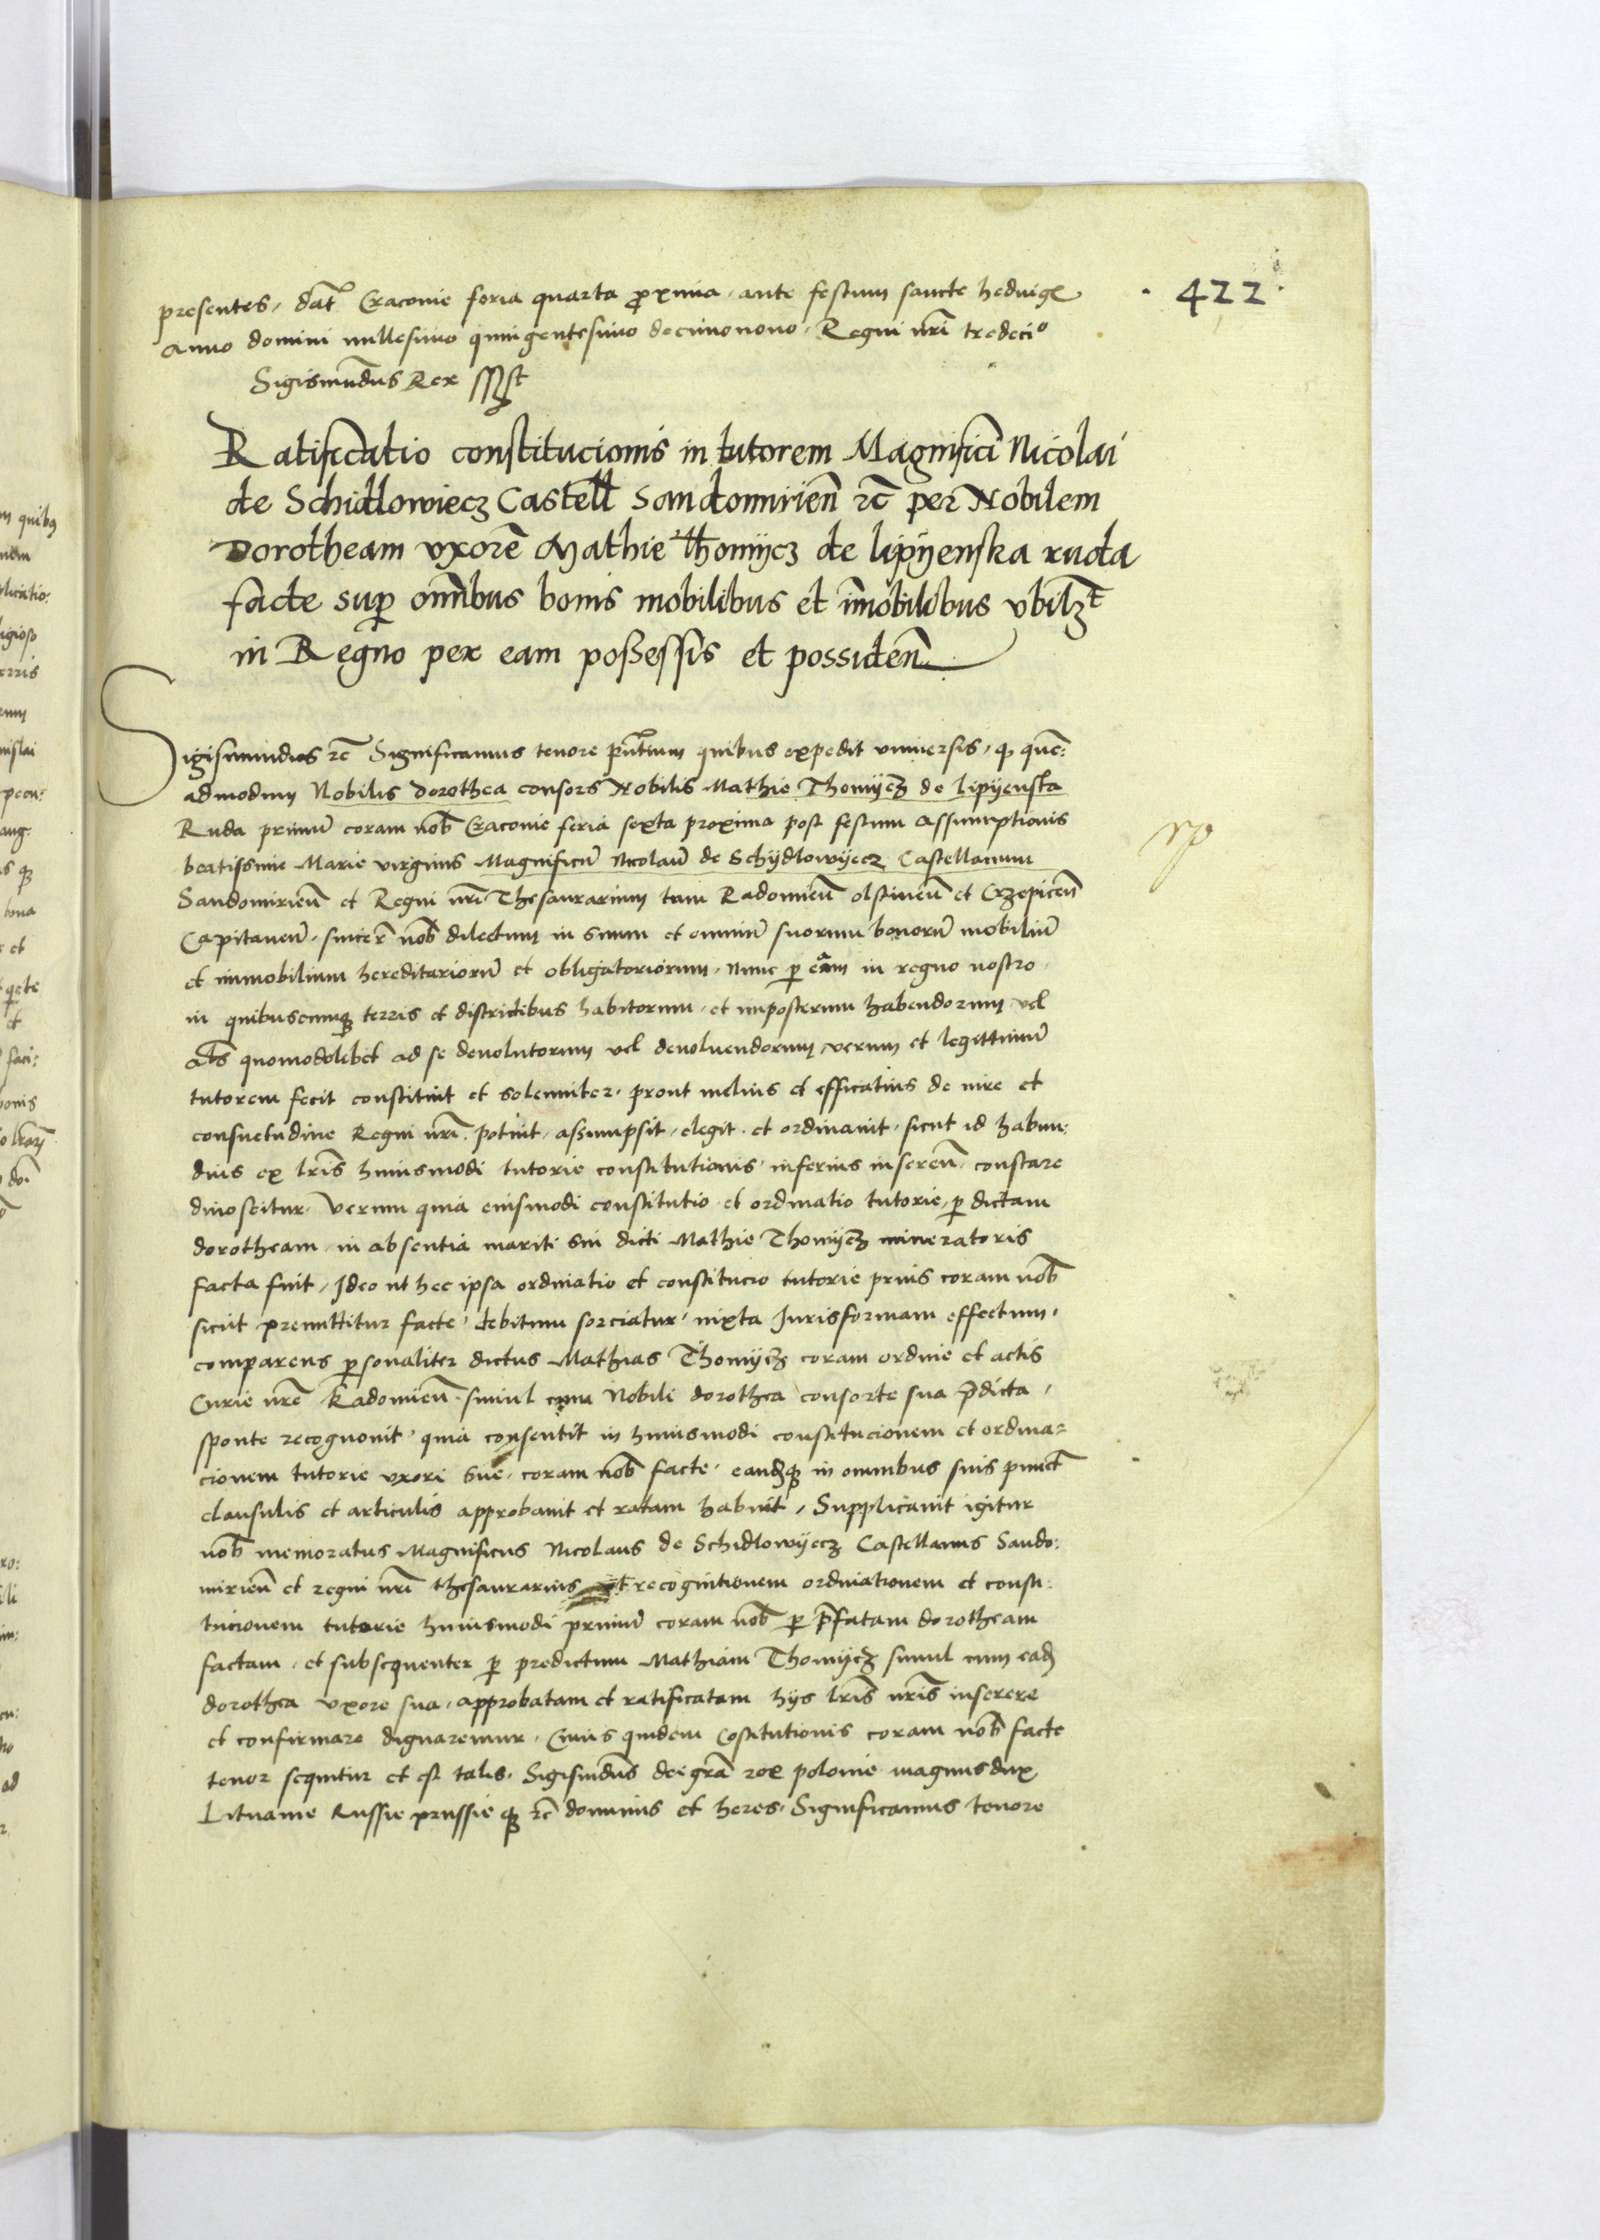 422
presentes, dat Cracovie feria quarta proxima, ante festum sancte hedvigis
Anno domini millesimo quingentesimo decimonono, Regni nri tredecio
Sigismundus Rex sspt
Ratificatio constitucionis in tutorem Magnifici Nicolai
de Schidlowiecz Castell Sandomirien rc per Nobilem
Dorotheam vxore Mathie Thomijcz de lipijenska ruda
facte sup omnibus bonis mobilibus et immobilibus vbilzt
in Regno per eam possessis et possiden
Sigismundus rc Significamus tenore pntium quibus expedit vniuersis, q que:
admodum Nobilis dorothea consors Nobilis Mathie Thomijcz de lipijenska
Ruda primu coram nob Cracovie feria sexta proxima post festum Assumptionis
beatissime Marie virginis Magnificu Nicolau de Schijdlowijecz Castellanum
Sandomirien et Regni nri Thesaurarium tum Radomien olstinen et Crzepicen
Capitaneu, sincer nob dilectum in suum et omniu suorum bonoru mobiliu
et immobilium hereditarioru et obligatoriorum, nunc p eam in regno nostro
in quibuscumq terris et districtibus habitorum, et imposterum habendorum vel
als quomodolibet ad se deuolutorum vel deuoluendorum, verum et legittimu
tutorem fecit constituit et solemniter, prout melius et efficatius de iure et
consuetudine Regni nri potuit, assumpsit, elegit, et ordinauit, sicut id habun:
dius ex lris huiusmodi tutorie constitutionis, inferius inseren, constare
dinoscitur, Verum quia eiusmodi constitutio et ordinatio tutorie, p dictam
dorotheam, in absentia mariti sui dicti Mathie Thomijcz mineratoris
facta fuit, Ideo ut hec ipsa ordinatio et constitucio tutorie prius coram nob
sicut premittitur facte, debitum sorciatur, iuxta Juris formam effectum,
comparens psonaliter dictus Mathias Thomijcz coram ordine et actis
Curie nre Radomien, simul cum Nobili dorothea consorte sua pdicta,
sponte recognouit, quia consentit in huiusmodi constitucionem et ordina=
cionem tutorie vxori sue, coram nob facte, eandq in omnibus suis punct
clausulis et articulis approbauit et ratam habuit, Supplicauit igitur
nob memoratus Magnificus Nicolaus de Schidlowijecz Castellanus Sando:
mirien et regni nri thesaurarius ut recognitionem ordinationem et consti:
tucionem tutorie huiusmodi primu coram nob p pfatam dorotheam
factam, et subsequenter p predictum Mathiam Thomijcz simul cum ead
dorothea vxore sua, approbatam et ratificatam hijs lris nris inserere
et confirmare dignaremur, Cuius quidem Costitutionis coram nob facte
tenor sequitur et est talis, Sigismdus dei gra rex polonie magnus dux
Lituanie Russie prussie q rc dominus et heres, Significamus tenore